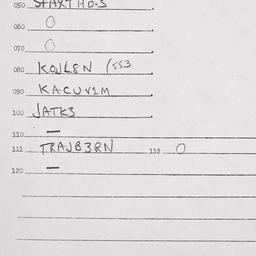 050 SFAXTHO.S
060 O
070 O
080 KOWL8N (553
090 KACUV1M
100 JATK3
110 —
111 TRAJB3RN 112 O
120 —